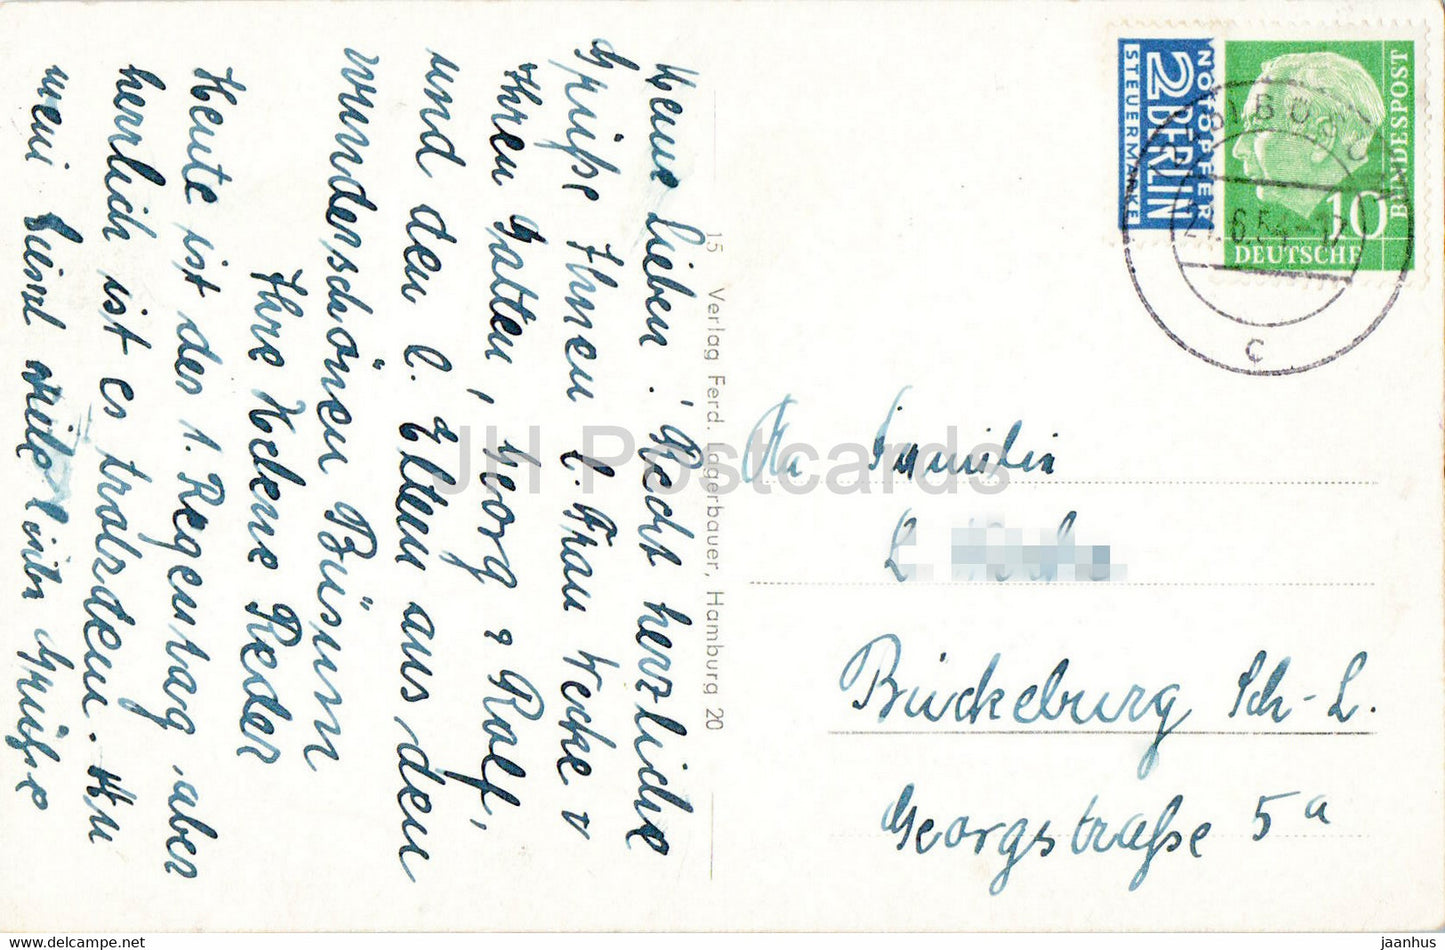 Meine Lieben! Recht herzliche
Grüße Ihnen l. Frau Wecke u
Ihren Gatten, Georg & Rolf,
und den l. Eltern aus dem
wunderschönen Büsum
Ihre Helene Reder
Heute ist der 1. Regentag, aber
herrlich ist es trotzdem. An
viele liebe Grüße
15 Verlag Ferd. Lagerbauer, Hamburg 20
NOTOPFER
2 BERLIN
STEUERMARKE
DEUTSCHE
BUNDESPOST
10
6.54
c
An Familie
Bückeburg Sch-L.
Georgstraße 5a
JH Postcards
jaanhus.delcampe.net
jaanhus